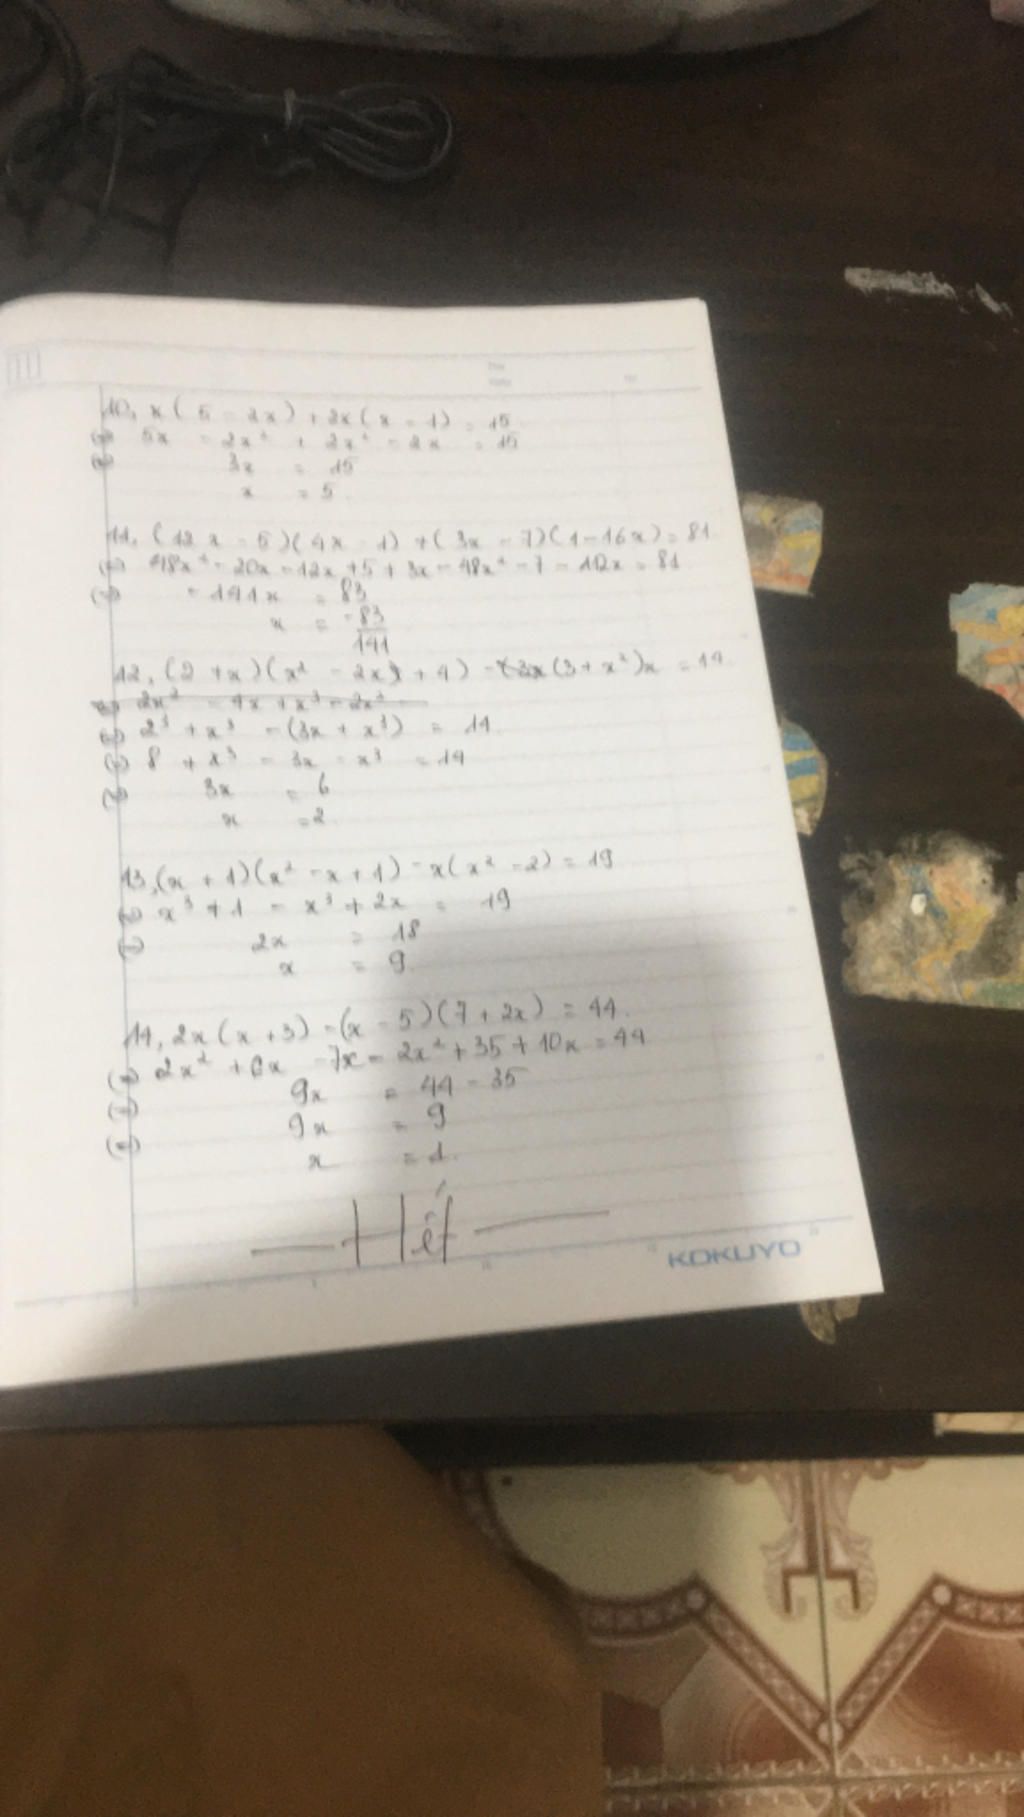 10, x(5 - 2x) + 2x(x - 1) = 15
(=) 5x - 2x² + 2x² - 2x = 15
(=) 3x = 15
x = 5
11, (12x - 5)(4x - 1) + (3x - 7)(1 - 16x) = 81
(=) 48x² - 20x - 12x + 5 + 3x - 48x² - 7 - 112x = 81
(=) - 141x = 83
x = -83/141
12, (2 + x)(x² - 2x + 4) - (3 + x²)x = 14
(=) 2x² - 4x + x³ - 2x²
(=) 2³ + x³ - (3x + x³) = 14
(=) 8 + x³ - 3x - x³ = 14
(=) 3x = 6
x = 2
13, (x + 1)(x² - x + 1) - x(x² - 2) = 19
(=) x³ + 1 - x³ + 2x = 19
(=) 2x = 18
x = 9
14, 2x(x + 3) - (x - 5)(7 + 2x) = 44
(=) 2x² + 6x - 7x - 2x² + 35 + 10x = 44
(=) 9x = 44 - 35
(=) 9x = 9
x = 1
Hết
KOKUYO